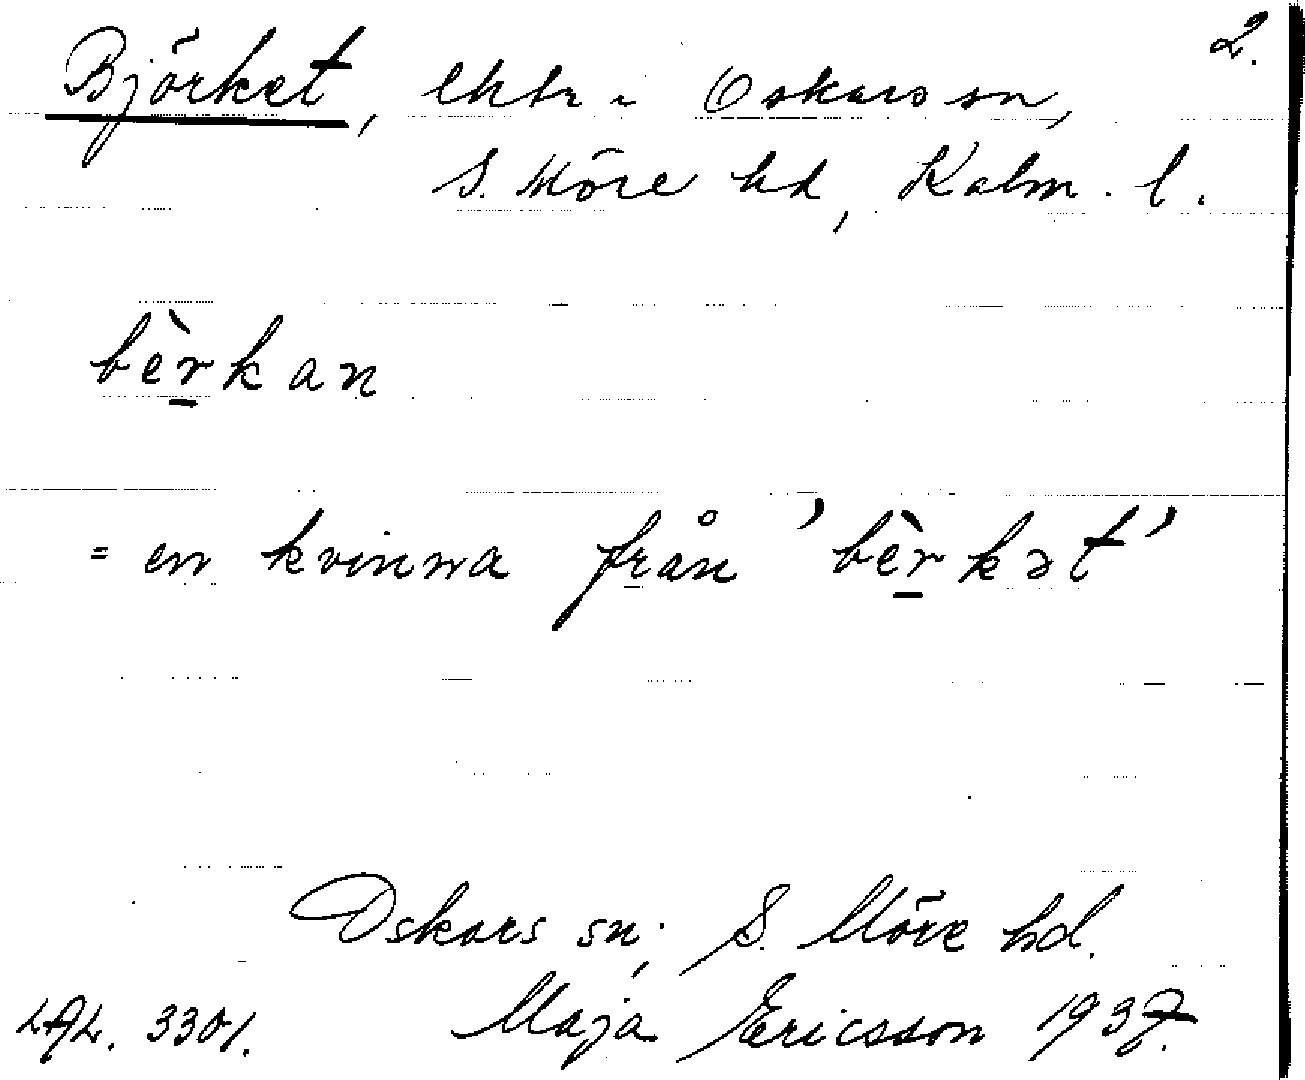 2.
Björket, i Oskars sn,
S. Möre hd, Kalm. l.
bèr̲kan
= en kvinna från 'bèr̲kət'
Oskars sn; S. Möre hd.
LAL. 3301. Maja Ericsson 1937.